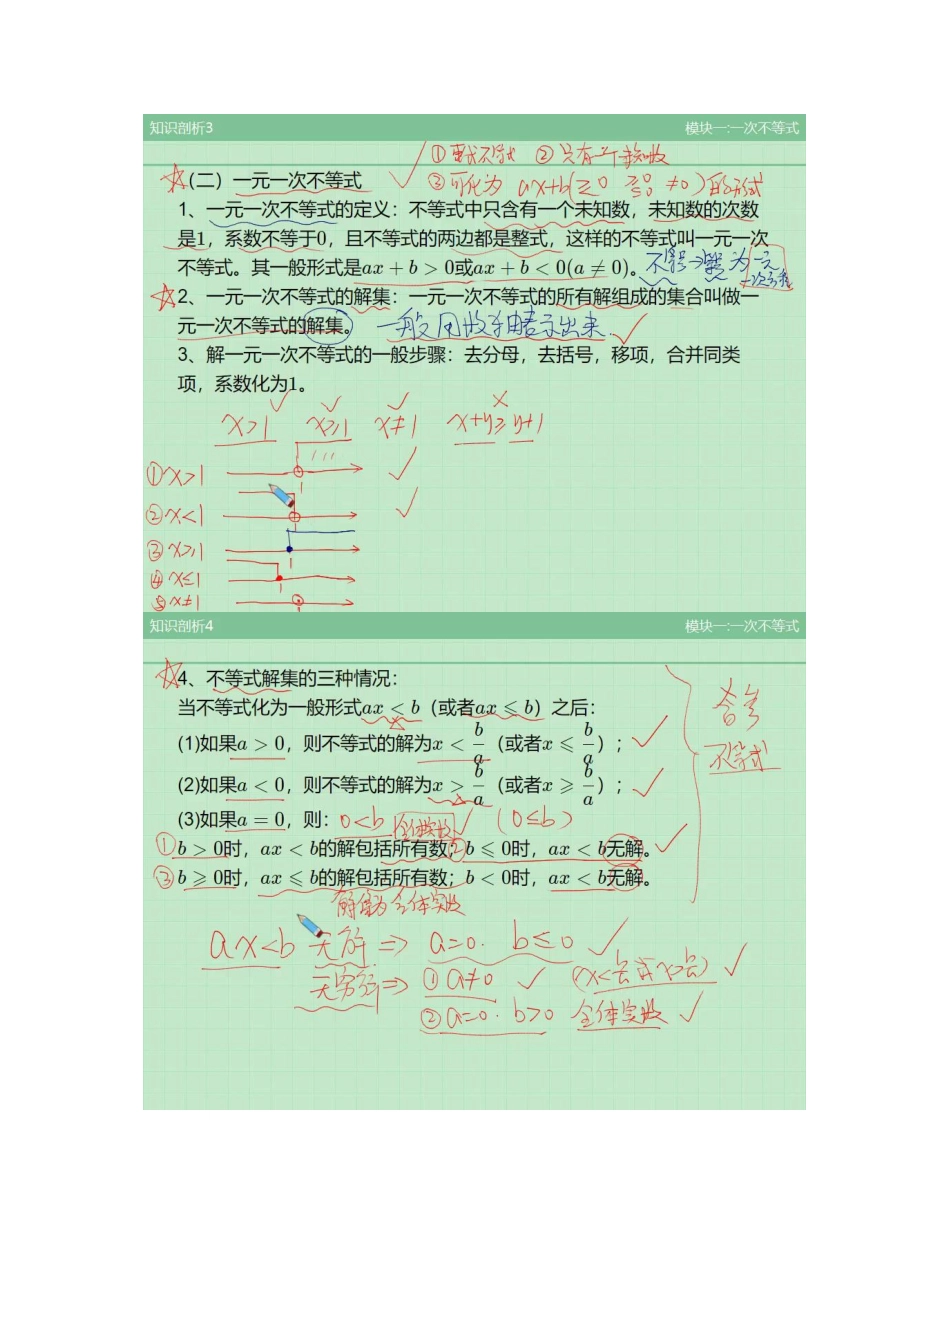 知识剖析3 模块一:一次不等式
①要求不等式 ②只有一个未知数
(二) 一元一次不等式 ③可化为 ax+b(≥0 ≤0 ≠0)的形式
1、一元一次不等式的定义：不等式中只含有一个未知数，未知数的次数
是1，系数不等于0，且不等式的两边都是整式，这样的不等式叫一元一次
不等式。其一般形式是ax + b > 0或ax + b < 0(a ≠ 0)。
2、一元一次不等式的解集：一元一次不等式的所有解组成的集合叫做一
元一次不等式的解集。 一般用数轴表示出来
3、解一元一次不等式的一般步骤：去分母，去括号，移项，合并同类
项，系数化为1。
x>1 x≥1 x≠1 x+y≥y+1
①x>1 1
②x<1 1
③x≥1 1
④x≤1 1
⑤x≠1
知识剖析4 模块一:一次不等式
4、不等式解集的三种情况：
当不等式化为一般形式ax < b（或者ax ⩽ b）之后：
含参
不等式
(1)如果a > 0，则不等式的解为x < b/a（或者x ⩽ b/a）；
(2)如果a < 0，则不等式的解为x > b/a（或者x ⩾ b/a）；
(3)如果a = 0，则：0<b 全体实数 (0≤b)
①b > 0时，ax < b的解包括所有数；②b ⩽ 0时，ax < b无解。
③b ⩾ 0时，ax ⩽ b的解包括所有数；b < 0时，ax < b无解。
解集为全体实数
ax<b 无解⇒ a=0. b≤0
无穷解⇒ ①a≠0 (x<b/a 或 x>b/a)
②a=0. b>0 全体实数